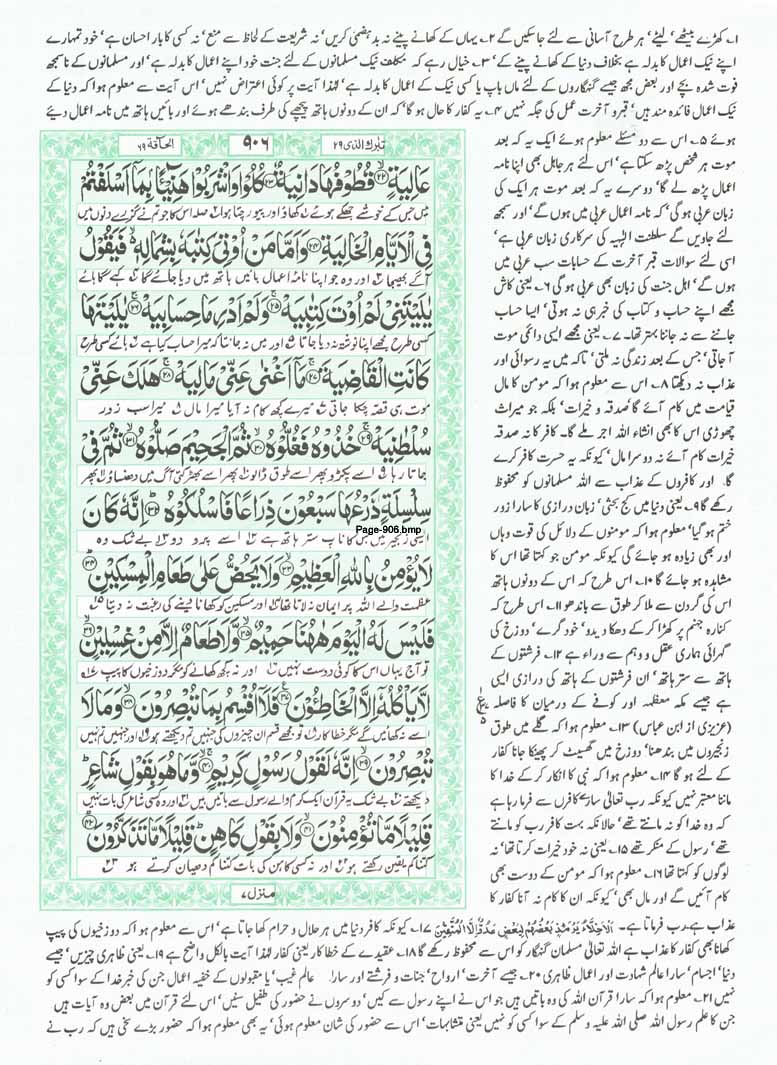 ۱۔ کھڑے بیٹھے، لیٹے، ہر طرح آسانی سے لئے جا سکیں گے ۲۔ یہاں کے کھانے پینے نہ بدہضمی کریں، نہ شریعت کے لحاظ سے منع، نہ کسی کا بار احسان ہے، خود تمہارے
اپنے نیک اعمال کا بدلہ ہے بخلاف دنیا کے کھانے پینے کے، ۳۔ خیال رہے کہ مکلف نیک مسلمانوں کے لئے جنت خود اپنے اعمال کا بدلہ ہے، اور مسلمانوں کے ناسمجھ
فوت شدہ بچے اور بعض مجھ جیسے گنہگاروں کے لئے ماں باپ یا کسی نیک کے اعمال کا بدلہ ہے، لہٰذا آیت پر کوئی اعتراض نہیں، اس آیت سے معلوم ہوا کہ دنیا کے
نیک اعمال فائدہ مند ہیں، قبر و آخرت عمل کی جگہ نہیں ۴۔ یہ کفار کا حال ہو گا، کہ ان کے دونوں ہاتھ پیچھے کی طرف بندھے ہوئے اور بائیں ہاتھ میں نامہ اعمال دیئے
ہوئے ۵۔ اس سے دو مسئلے معلوم ہوئے ایک یہ کہ بعد
موت ہر شخص پڑھ سکتا ہے، اس لئے ہر جاہل بھی اپنا نامہ
اعمال پڑھ لے گا، دوسرے یہ کہ بعد موت ہر ایک کی
زبان عربی ہوگی، کہ نامہ اعمال عربی میں ہوں گے، اور سمجھ
لئے جاویں گے سلطنت الٰہیہ کی سرکاری زبان عربی ہے،
اسی لئے سوالات قبر آخرت کے حسابات سب عربی میں
ہوں گے، اہل جنت کی زبان بھی عربی ہوگی ۶۔ یعنی کاش
مجھے اپنے حساب و کتاب کی خبر ہی نہ ہوتی، ایسا حساب
جاننے سے نہ جاننا بہتر تھا۔ ۷۔ یعنی مجھے ایسی دائمی موت
آ جاتی، جس کے بعد زندگی نہ ملتی، تاکہ میں یہ رسوائی اور
عذاب نہ دیکھتا ۸۔ اس سے معلوم ہوا کہ مومن کا مال
قیامت میں کام آئے گا صدقہ و خیرات، بلکہ جو میراث
چھوڑی اس کا بھی انشاء اللہ اجر ملے گا۔ کافر کا نہ صدقہ
خیرات کام آئے نہ دوسرا مال، کیونکہ یہ حسرت کافر کرے
گا۔ اور کافروں کے عذاب سے اللہ مسلمانوں کو محفوظ
رکھے گا ۹۔ یعنی دنیا میں کج بحثی، زبان درازی کا سارا زور
ختم ہو گیا، معلوم ہوا کہ مومنوں کے دلائل کی قوت وہاں
اور بھی زیادہ ہو جائے گی کیونکہ مومن جو کہتا تھا اس کا
مشاہدہ ہو جائے گا ۱۰۔ اس طرح کہ اس کے دونوں ہاتھ
اس کی گردن سے ملا کر طوق سے باندھو ۱۱۔ اس طرح کہ
کنارہ جہنم پر کھڑا کر کے دھکا دیدو، خود گرے، دوزخ کی
گہرائی ہماری عقل و وہم سے وراء ہے ۱۲۔ فرشتوں کے
ہاتھ سے ستر ہاتھ، ان فرشتوں کے ہاتھ کی درازی ایسی
ہے جیسے مکہ معظمہ اور کوفے کے درمیان کا فاصلہ
(عزیزی از ابن عباس) ۱۳۔ معلوم ہوا کہ گلے میں طوق
زنجیروں میں بندھنا، دوزخ میں گھسیٹ کر پھینکا جانا کفار
کے لئے ہو گا ۱۴۔ معلوم ہوا کہ نبی کا انکار کر کے خدا کا
ماننا معتبر نہیں کیونکہ رب تعالیٰ سارے کافروں سے فرما رہا ہے
کہ وہ خدا کو نہ مانتے تھے، حالانکہ بہت کافر رب کو مانتے
تھے، رسول کے منکر تھے ۱۵۔ یعنی نہ خود خیرات کرتا تھا، نہ
لوگوں کو کہتا تھا ۱۶۔ معلوم ہوا کہ مومن کے دوست بھی
کام آئیں گے اور مال بھی، کیونکہ ان کا کام نہ آنا کفار کا
تبٰرك الذی ۲۹
۹۰۶
الحاقة ۶۹
عَالِيَةٍ ۙ۲۲ قُطُوْفُهَا دَانِيَةٌ ۲۳ كُلُوْا وَاشْرَبُوْا هَنِيْٓـًٔۢا بِمَآ اَسْلَفْتُمْ
میں جس کے خوشے جھکے ہوئے کھاؤ اور پیو رچتا ہوا صلہ اس کا جو تم نے گزرے دنوں میں
فِي الْاَيَّامِ الْخَالِيَةِ ۲۴ وَاَمَّا مَنْ اُوْتِيَ كِتٰبَهٗ بِشِمَالِهٖ ۙ فَيَقُوْلُ
آگے بھیجا اور وہ جو اپنا نامۂ اعمال بائیں ہاتھ میں دیا جائے گا کہے گا ہائے
يٰلَيْتَنِيْ لَمْ اُوْتَ كِتٰبِيَهْ ۲۵ وَلَمْ اَدْرِ مَا حِسَابِيَهْ ۲۶ يٰلَيْتَهَا
کسی طرح مجھے اپنا نوشتہ نہ دیا جاتا اور میں نہ جانتا کہ میرا حساب کیا ہے ہائے کسی طرح
كَانَتِ الْقَاضِيَةَ ۲۷ مَآ اَغْنٰى عَنِّيْ مَالِيَهْ ۲۸ هَلَكَ عَنِّيْ
موت ہی قصہ چکا جاتی میرے کچھ کام نہ آیا میرا مال میرا سب زور
سُلْطٰنِيَهْ ۲۹ خُذُوْهُ فَغُلُّوْهُ ۳۰ ثُمَّ الْجَحِيْمَ صَلُّوْهُ ۳۱ ثُمَّ فِيْ
جاتا رہا اسے پکڑو پھر اسے طوق ڈالو پھر اسے بھڑکتی آگ میں دھنساؤ پھر
سِلْسِلَةٍ ذَرْعُهَا سَبْعُوْنَ ذِرَاعًا فَاسْلُكُوْهُ ۳۲ اِنَّهٗ كَانَ
ایسی زنجیر میں جس کا ناپ ستر ہاتھ ہے اسے پرو دو بے شک وہ
Page-906.bmp
لَا يُؤْمِنُ بِاللّٰهِ الْعَظِيْمِ ۳۳ وَلَا يَحُضُّ عَلٰى طَعَامِ الْمِسْكِيْنِ ۳۴
عظمت والے اللہ پر ایمان نہ لاتا تھا اور مسکین کو کھانا دینے کی رغبت نہ دیتا
فَلَيْسَ لَهُ الْيَوْمَ هٰهُنَا حَمِيْمٌ ۳۵ وَّلَا طَعَامٌ اِلَّا مِنْ غِسْلِيْنٍ ۳۶
تو آج یہاں اس کا کوئی دوست نہیں اور نہ کچھ کھانے کو مگر دوزخیوں کا پیپ
لَّا يَاْكُلُهٗٓ اِلَّا الْخَاطِـُٔوْنَ ۳۷ فَلَآ اُقْسِمُ بِمَا تُبْصِرُوْنَ ۳۸ وَمَا لَا
اسے نہ کھائیں گے مگر خطا کار تو مجھے قسم ان چیزوں کی جنہیں تم دیکھتے ہو اور جنہیں تم نہیں
تُبْصِرُوْنَ ۳۹ اِنَّهٗ لَقَوْلُ رَسُوْلٍ كَرِيْمٍ ۴۰ وَّمَا هُوَ بِقَوْلِ شَاعِرٍ ؕ
دیکھتے بے شک یہ قرآن ایک کرم والے رسول سے باتیں ہیں اور وہ کسی شاعر کی بات نہیں
قَلِيْلًا مَّا تُؤْمِنُوْنَ ۴۱ وَلَا بِقَوْلِ كَاهِنٍ ؕ قَلِيْلًا مَّا تَذَكَّرُوْنَ ۴۲
کتنا کم یقین رکھتے ہو اور نہ کسی کاہن کی بات کتنا کم دھیان کرتے ہو
منزل ۷
عذاب ہے۔ رب فرماتا ہے۔ اَلْاَخِلَّآءُ يَوْمَئِذٍۭ بَعْضُهُمْ لِبَعْضٍ عَدُوٌّ اِلَّا الْمُتَّقِيْنَ ۱۷۔ کیونکہ کافر دنیا میں ہر حلال و حرام کھا جاتا ہے، اس سے معلوم ہوا کہ دوزخیوں کی پیپ
کھانا بھی کفار کا عذاب ہے اللہ تعالیٰ مسلمان گنہگار کو اس سے محفوظ رکھے گا ۱۸۔ عقیدے کے خطا کار یعنی کفار لہٰذا آیت بالکل واضح ہے ۱۹۔ یعنی ظاہری چیزیں، جیسے
دنیا، اجسام، سارا عالم شہادت اور اعمال ظاہری ۲۰۔ جیسے آخرت، ارواح، جنات و فرشتے اور سارا عالم غیب، یا مقبولوں کے خفیہ اعمال جن کی خبر خدا کے سوا کسی کو
نہیں ۲۱۔ معلوم ہوا کہ سارا قرآن اللہ کی وہ باتیں ہیں جو اس نے اپنے رسول سے کیں، دوسروں نے حضور کی طفیل سنیں، اس لئے قرآن میں بعض وہ آیات ہیں
جن کا علم رسول اللہ صلی اللہ علیہ وسلم کے سوا کسی کو نہیں یعنی متشابہات، اس سے حضور کی شان معلوم ہوئی، یہ بھی معلوم ہوا کہ حضور بڑے سخی ہیں کہ رب نے